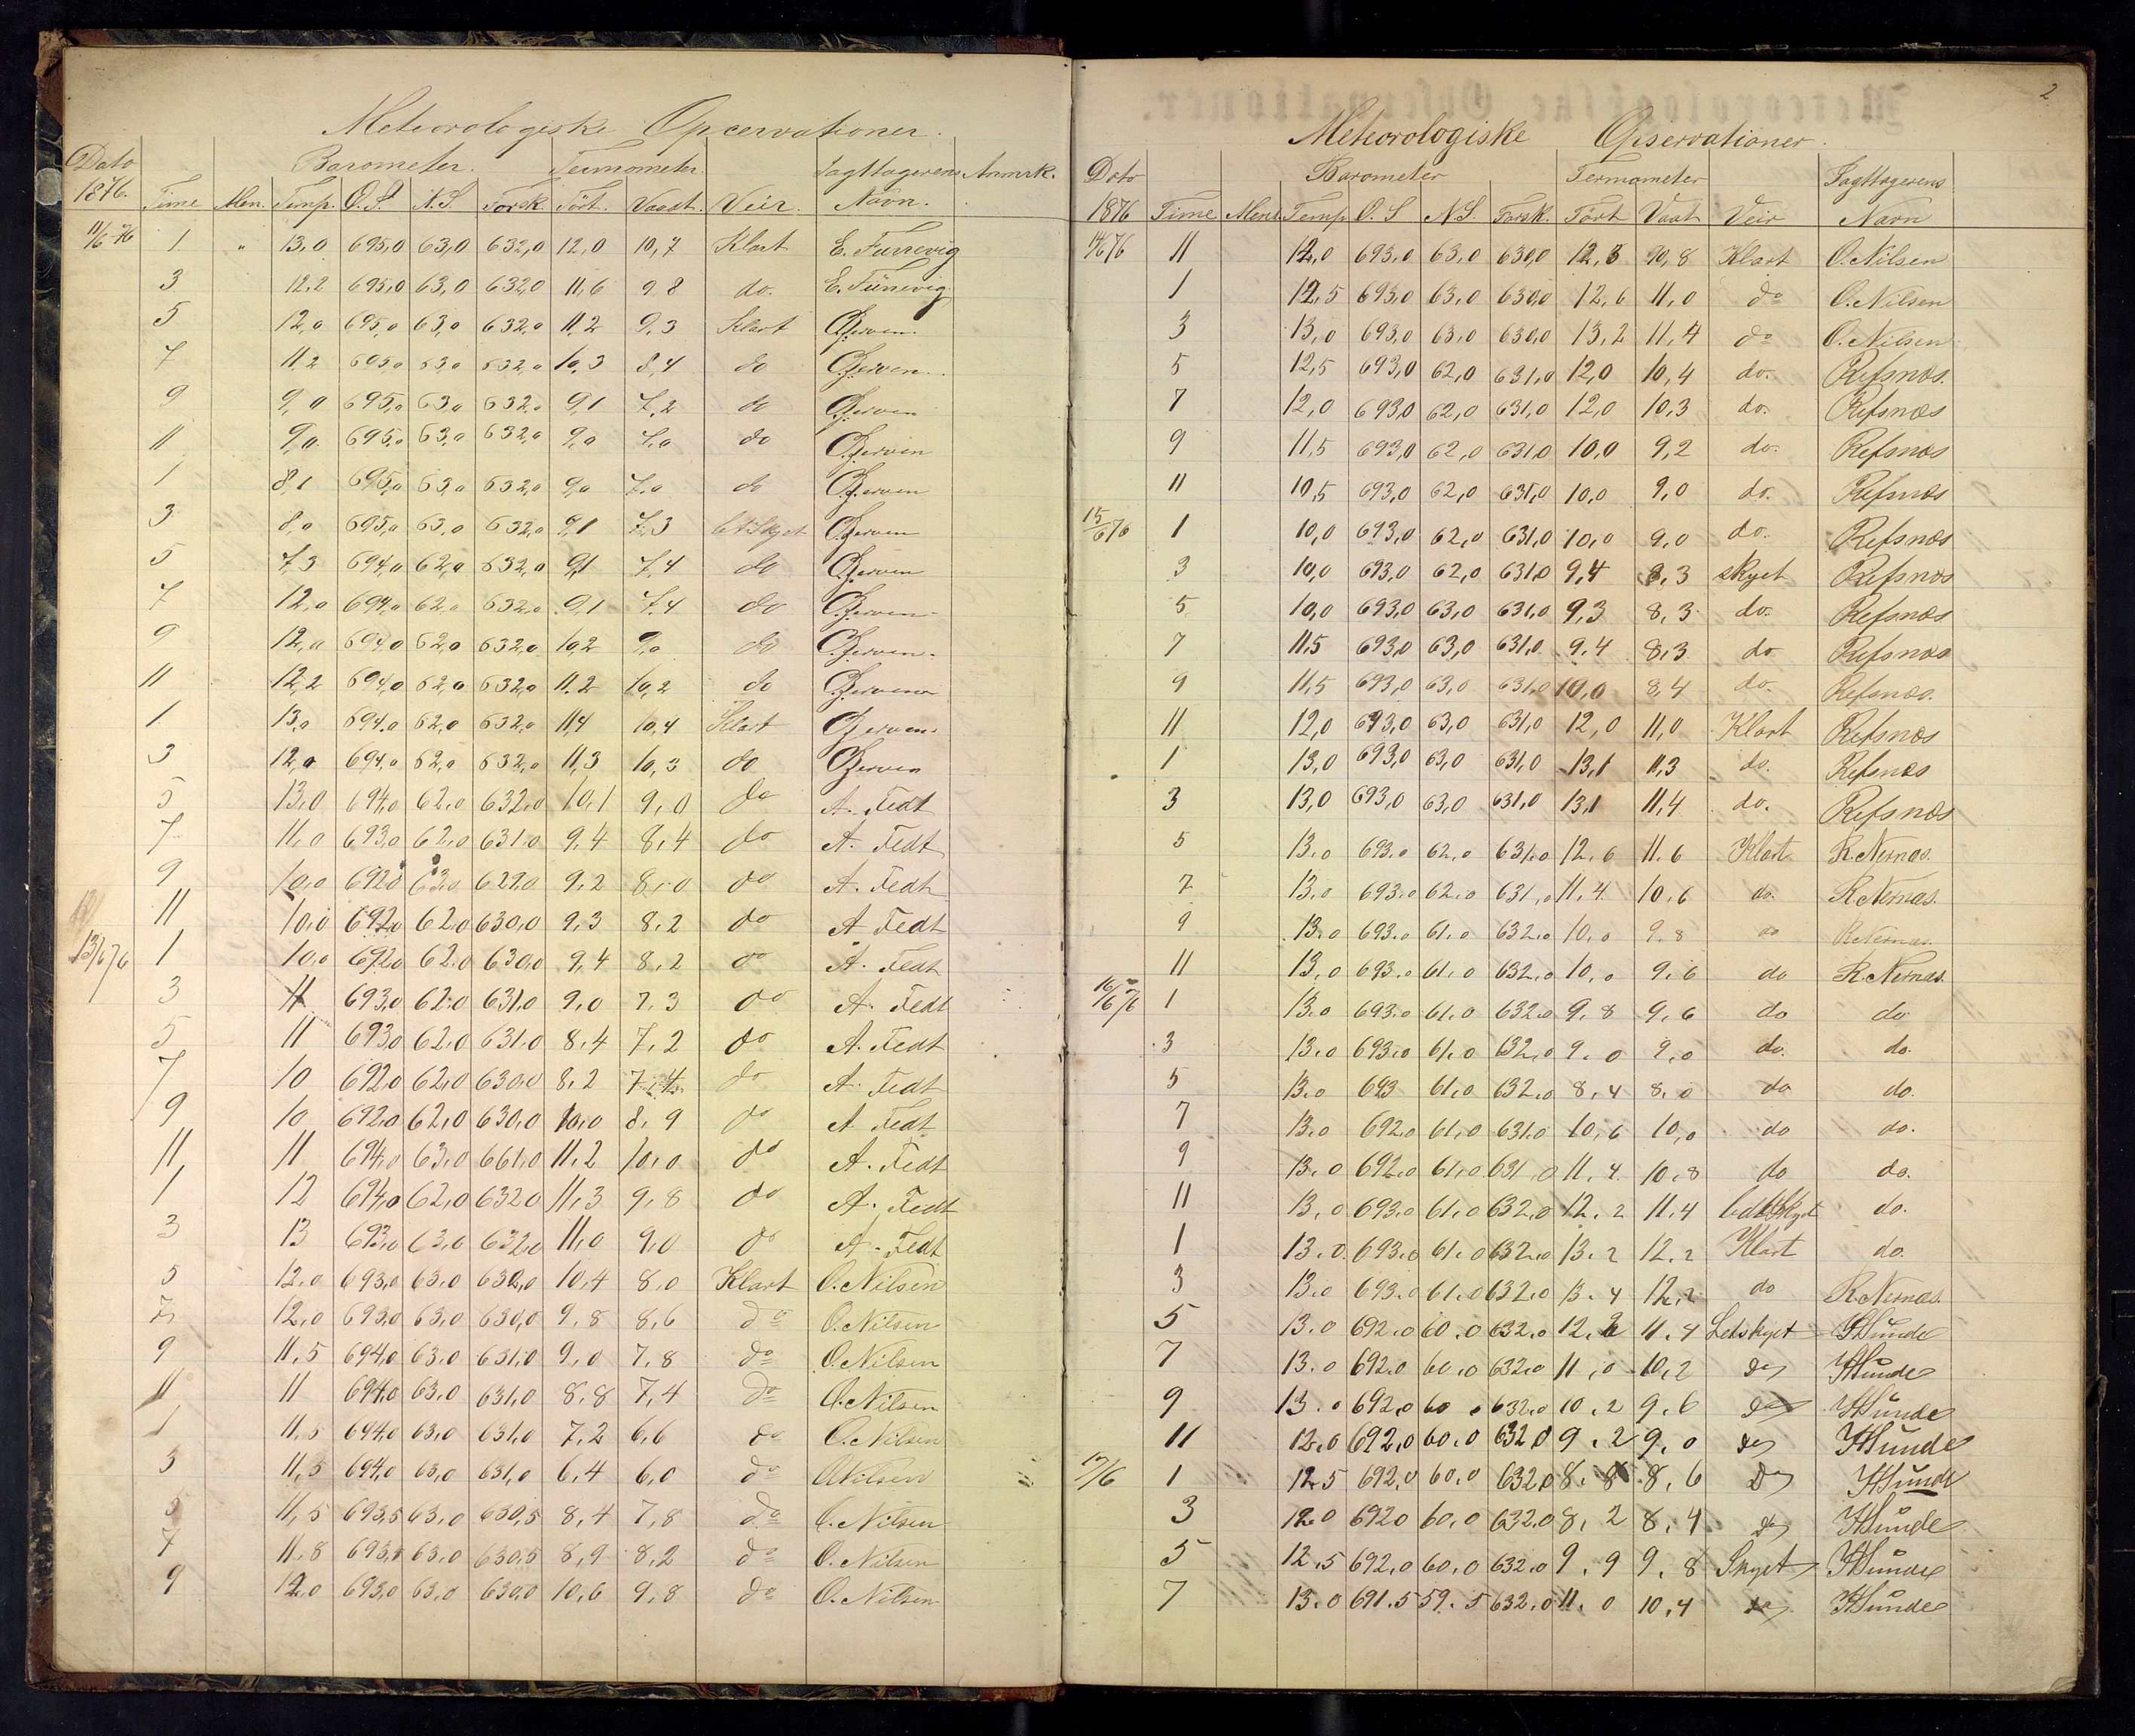 Meteorologiske Opcervationer.
Dato Barometer. Termometer. Iagttagerens Anmrk.
1876. Time Men. Temp. O.S. N.S. Forsk. Tört. Vaadt. Veir. Navn.
11/6 76 1 " 13,0 695,0 63,0 632,0 12,0 10,7 Klart E. Furrevig
3 12,2 695,0 63,0 632,0 11,6 9 8 do. E. Furrevig
5 12,0 695,0 63,0 632,0 11,2 9,3 Klart
7 11,2 695,0 63,0 632,0 10,3 8,4 do
9 9,0 695,0 63,0 632,0 9,1 7,2 do
11 9,0 695,0 63,0 632,0 9,0 7,0 do
1 8,1 695,0 63,0 632,0 9,0 7,0 do
3 8,0 695,0 63,0 632,0 9,1 7,3
5 7,3 694,0 62,0 632,0 9,1 7,4 do
7 12,0 694,0 62,0 632,0 9,1 7,4 do
9 12,0 694,0 62,0 632,0 10,2 9,0 do
11 12,2 694,0 62,0 632,0 11,2 10,2 do
1 13,0 694,0 62,0 632,0 11,4 10,4 Klart
3 12,0 694,0 62,0 632,0 11,3 10,3 do
5 13,0 694,0 62,0 632,0 10,1 9,0 do A. Fedt
7 11,0 693,0 62,0 631,0 9,4 8,4 do A. Fedt
9 10,0 692,0 63,0 629,0 9,2 8,0 do A. Fedt
11 10,0 692,0 62,0 630,0 9,3 8,2 do A Fedt
13/6 76 1 10,0 692,0 62,0 630,0 9,4 8,2 do A. Fedt
3 11 693,0 62,0 631,0 9,0 7,3 do A. Fedt
5 11 693,0 62,0 631,0 8,4 7,2 do A. Fedt
7 10 692,0 62,0 630,0 8,2 7,4 do A. Fedt
9 10 692,0 62,0 630,0 10,0 8,9 do A Fedt
11 11 694,0 63,0 661,0 11,2 10,0 do A. Fedt
1 12 694,0 62,0 632,0 11,3 9,8 do A. Fedt
3 13 693,0 63,0 632,0 11,0 9,0 do A. Fedt
5 12,0 693,0 63,0 630,0 10,4 8,0 Klart O. Nilsen
7 12,0 693,0 63,0 630,0 9,8 8,6 do O. Nilsen
9 11,5 694,0 63,0 631,0 9,0 7,8 do O. Nilsen
11 11 694,0 63,0 631,0 8,8 7,4 do O. Nilsen
1 11,5 694,0 63,0 631,0 7,2 6,6 do O. Nilsen
3 11,5 694,0 63,0 631,0 6,4 6,0 do O Nilsen
5 11,5 693,5 63,0 630,5 8,4 7,8 do O. Nilsen
7 11,8 693,5 63,0 630,5 8,9 8,2 do O. Nilsen
9 12,0 693,0 63,0 630,0 10,6 9,8 do O. Nilsen
2
Meteorologiske Opservationer.
Dato Barometer Termometer Iagttagerens
1876 Time Mend Temp O.S N.S. Forsk. Tört Vaat Veir Navn
14/6 76 11 12,0 693,0 63,0 630,0 12,3 10,8 Klart O. Nilsen
1 12,5 693,0 63,0 630,0 12,6 11,0 do O. Nilsen
3 13,0 693,0 63,0 630,0 13,2 11,4 do O. Nilsen
5 12,5 693,0 62,0 631,0 12,0 10,4 do. Refsnæs.
7 12,0 693,0 62,0 631,0 12,0 10,3 do. Refsnæs
9 11,5 693,0 62,0 631,0 10,0 9,2 do. Refsnæs
11 10,5 693,0 62,0 631,0 10,0 9,0 do. Refsnæs
15/6 76 1 10,0 693,0 62,0 631,0 10,0 9,0 do. Refsnæs
3 10,0 693,0 62,0 631,0 9,4 8,3 skyet Refsnæs
5 10,0 693,0 63,0 631,0 9,3 8,3 do. Refsnæs
7 11,5 693,0 63,0 631,0 9,4 8,3 do Refsnæs
9 11,5 693,0 63,0 631,0 10,0 8,4 do. Refsnæs.
11 12,0 693,0 63,0 631,0 12,0 11,0 Klart Refsnæs
1 13,0 693,0 63,0 631,0 13,1 11,3 do. Refsnæs
3 13,0 693,0 63,0 631,0 13,1 11,4 do. Refsnæs
5 13.0 693.0 62.0 631.0 12.6 11.6 Klart R. Nernæs.
7 13.0 693.0 62.0 631.0 11.4 10.6 do. R. Nernæs.
9 13.0 693.0 61.0 632.0 10.0 9.8 do R. Nernæs
11 13.0 693.0 61.0 632.0 10.0 9.6 do R. Nernæs.
16/6 76 1 13.0 693.0 61.0 632.0 9.8 9.6 do do
3 13.0 693.0 61.0 632.0 9.0 9.0 do. do.
5 13.0 693 61.0 632.0 8.4 8.0 do do.
7 13.0 692.0 61.0 631.0 10.6 10.0 do do.
9 13.0 692.0 61.0 631.0 11.4 10.8 do do.
11 13.0 693.0 61.0 632.0 12.2 11.4 do.
1 13.0 693.0 61.0 632.0 13.2 12.2 Klart do.
3 13.0 693.0 61.0 632.0 13.4 12.2 do R. Nernæs.
5 13.0 692.0 60.0 632.0 12.2 11.4 Letskyet HSunde
7 13.0 692.0 60.0 632.0 11.0 10.2 do HSunde
9 13.0 692.0 60.0 632.0 10.2 9.6 do HSunde
11 12.0 692.0 60.0 632.0 9.2 9.0 do HSunde
17/6 1 12.5 692.0 60.0 632.0 8.8 8.6 Do HSunde
3 12.0 692 0 60.0 632.0 8.2 8.4 do HSunde
5 12.5 692.0 60.0 632.0 9.9 9.8 Skyet HSunde
7 13.0 691.5 59.5 632.0 11.0 10.4 do HSunde